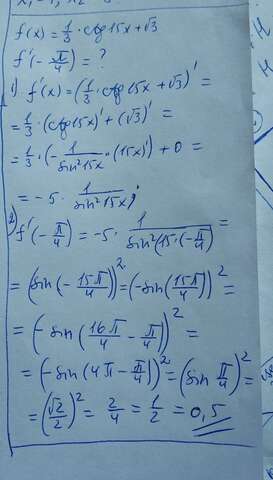 f(x) = 1/3 · ctg 15x + √3
f'(-π/4) = ?
1) f'(x) = (1/3 · ctg 15x + √3)' =
= 1/3 · (ctg 15x)' + (√3)' =
= 1/3 · (- 1/sin²15x · (15x)') + 0 =
= -5 · 1/sin²15x ;
2) f'(-π/4) = -5 · 1/sin²(15·(-π/4) =
= (sin(-15π/4))² = (-sin(15π/4))² =
= (-sin(16π/4 - π/4))² =
= (-sin(4π - π/4))² = (sin π/4)² =
= (√2/2)² = 2/4 = 1/2 = 0,5